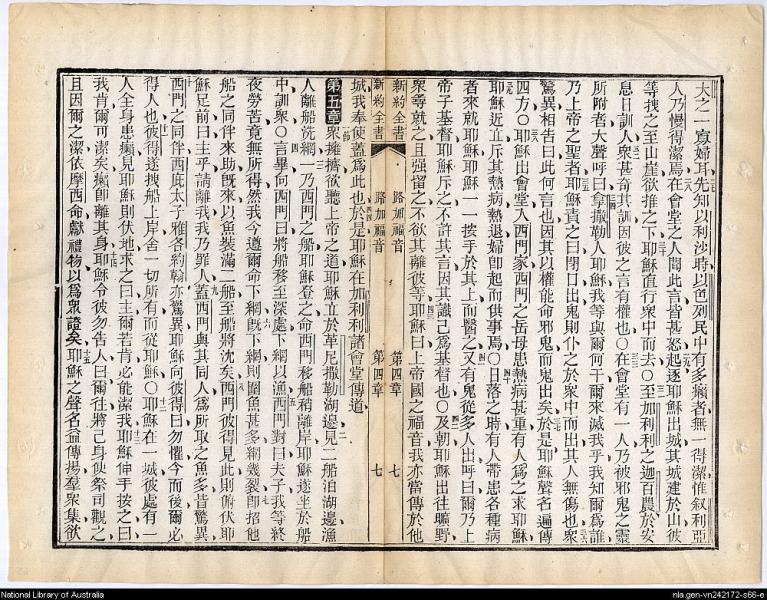 大之一寡婦耳先知以利沙時以色列民中有多癩者無一得潔惟叙利亞
人乃慢得潔焉在會堂之人聞此言皆甚怒起逐耶穌出城其城建於山彼
等拽之至山崖欲推之下耶穌直行衆中而去〇至加利利之迦百農於安
息日訓人衆甚奇其訓因彼之言有權也〇在會堂有一人乃被邪鬼之靈
所附者大聲呼曰拿撒勒人耶穌我等與爾何干爾來滅我乎我知爾爲誰
乃上帝之聖者耶穌責之曰閉口出鬼則仆之於衆中而出其人無傷也衆
驚異相告曰此何言也因其以權能命邪鬼而鬼出矣於是耶穌聲名遍傳
四方〇耶穌出會堂入西門家西門之岳母患熱病甚重有人爲之來耶穌
耶穌近立斥其熱病熱退婦卽起而供事焉〇日落之時有人帶患各種病
者來就耶穌耶穌一一按手於其上而醫之又有鬼從多人出呼曰爾乃上
帝子基督耶穌斥之不許其言因其識己爲基督也〇及朝耶穌出往曠野
衆尋就之且强留之不欲其離彼等耶穌曰上帝國之福音我亦當傳於他
新約全書 路加福音 第四章 七
新約全書 路加福音 第四章 七
城我奉使蓋爲此也於是耶穌在加利利諸會堂傳道
第五章 衆擁擠欲聽上帝之道耶穌立於革尼撒勒湖邊見二船泊湖邊漁
人離船洗網一乃西門之船耶穌登之命西門移船稍離岸耶穌遂坐於船
中訓衆〇言畢向西門曰將船移至深處下網以漁西門對曰夫子我等終
夜勞苦竟無所得然我今遵爾命下網旣下網則圍魚甚多網幾裂卽招他
船之同伴來助旣來以魚裝滿二船至船將沈矣西門彼得見此則俯伏耶
穌足前曰主乎請離我我乃罪人蓋西門與其同人爲所取之魚多皆驚異
西門之同伴西庇太子雅各約翰亦驚異耶穌向彼得曰勿懼今而後爾必
得人也彼得遂拽船上岸舍一切所有而從耶穌〇耶穌在一城彼處有一
人全身患癩見耶穌則伏地求之曰主爾若肯必能潔我耶穌伸手按之曰
我肯爾可潔矣癩卽離其身耶穌令彼勿告人曰爾往將己身使祭司觀之
且因爾之潔依摩西命獻禮物以爲衆證矣耶穌之聲名益傳揚羣衆集欲
National Library of Australia
nla.gen-vn242172-s66-e